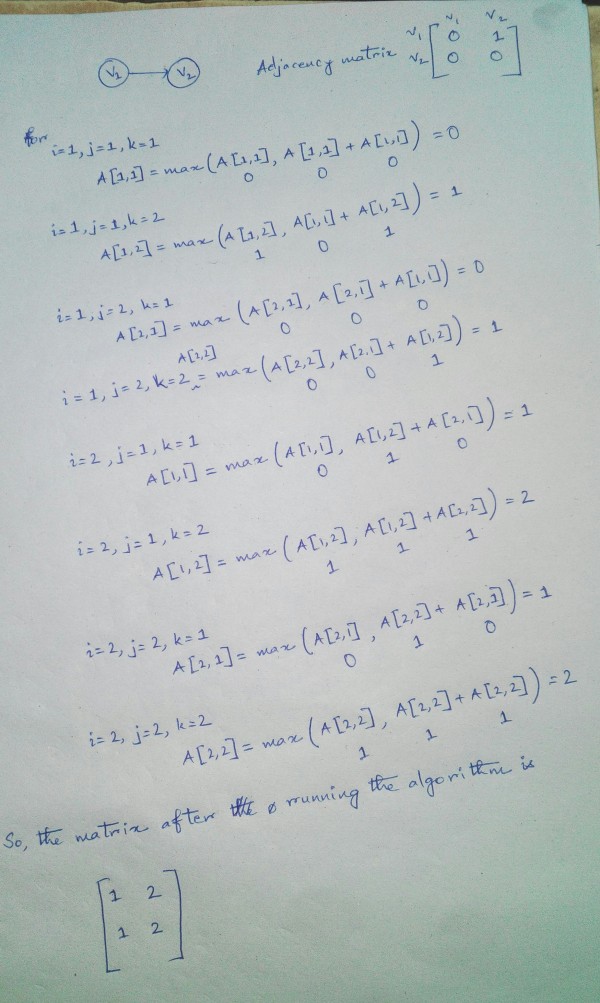 V1 V2 Adjacency matrix
V1 V2
V1 0 1
V2 0 0
for i=1, j=1, k=1
A[1,1] = max(A[1,1], A[1,1] + A[1,1]) = 0
0 0 0
i=1, j=1, k=2
A[1,2] = max(A[1,2], A[1,1] + A[1,2]) = 1
1 0 1
i=1, j=2, k=1
A[2,1] = max(A[2,1], A[2,1] + A[1,1]) = 0
0 0 0
A[2,2]
i=1, j=2, k=2 = max(A[2,2], A[2,1] + A[1,2]) = 1
0 0 1
i=2, j=1, k=1
A[1,1] = max(A[1,1], A[1,2] + A[2,1]) = 1
0 1 0
i=2, j=1, k=2
A[1,2] = max(A[1,2], A[1,2] + A[2,2]) = 2
1 1 1
i=2, j=2, k=1
A[2,1] = max(A[2,1], A[2,2] + A[2,1]) = 1
0 1 0
i=2, j=2, k=2
A[2,2] = max(A[2,2], A[2,2] + A[2,2]) = 2
1 1 1
So, the matrix after the running the algorithm is
1 2
1 2